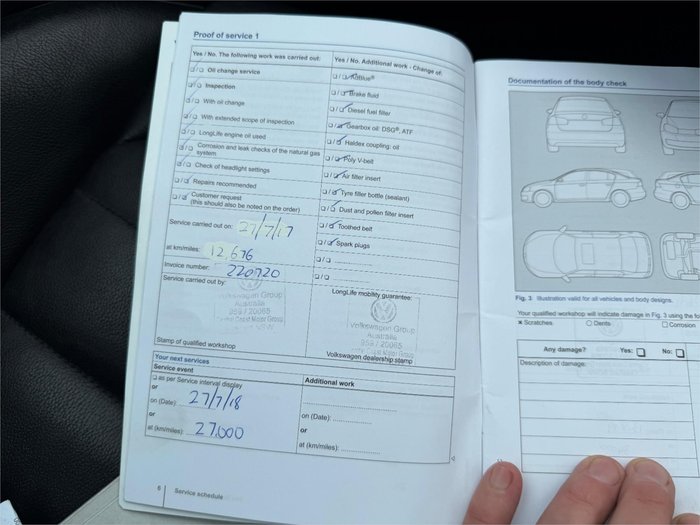 Proof of service 1
Yes / No. The following work was carried out:
Oil change service
Inspection
With oil change
With extended scope of inspection
LongLife engine oil used
Corrosion and leak checks of the natural gas
system
Check of headlight settings
Repairs recommended
Customer request
(this should also be noted on the order)
Service carried out on: 27/7/17
at km/miles: 12,676
Invoice number: 220720
Service carried out by:
Volkswagen Group
Australia
959 / 20065
Central Coast Motor Group
NSW
Stamp of qualified workshop
Yes / No. Additional work - Change of:
AdBlue®
Brake fluid
Diesel fuel filter
Gearbox oil: DSG®, ATF
Haldex coupling: oil
Poly V-belt
Air filter insert
Tyre filler bottle (sealant)
Dust and pollen filter insert
Toothed belt
Spark plugs
LongLife mobility guarantee:
Volkswagen Group
Australia
959 / 20065
Coast Motor Group
Volkswagen dealership stamp
Your next services
Service event
as per Service interval display
or
on (Date): 27/7/18
or
at (km/miles): 27.000
Additional work
on (Date):
or
at (km/miles):
6 Service schedule
Documentation of the body check
Fig. 3 Illustration valid for all vehicles and body designs.
Your qualified workshop will indicate damage in Fig. 3 using the fo
x Scratches O Dents □ Corrosion
Any damage? Yes: □ No: □
Description of damage: